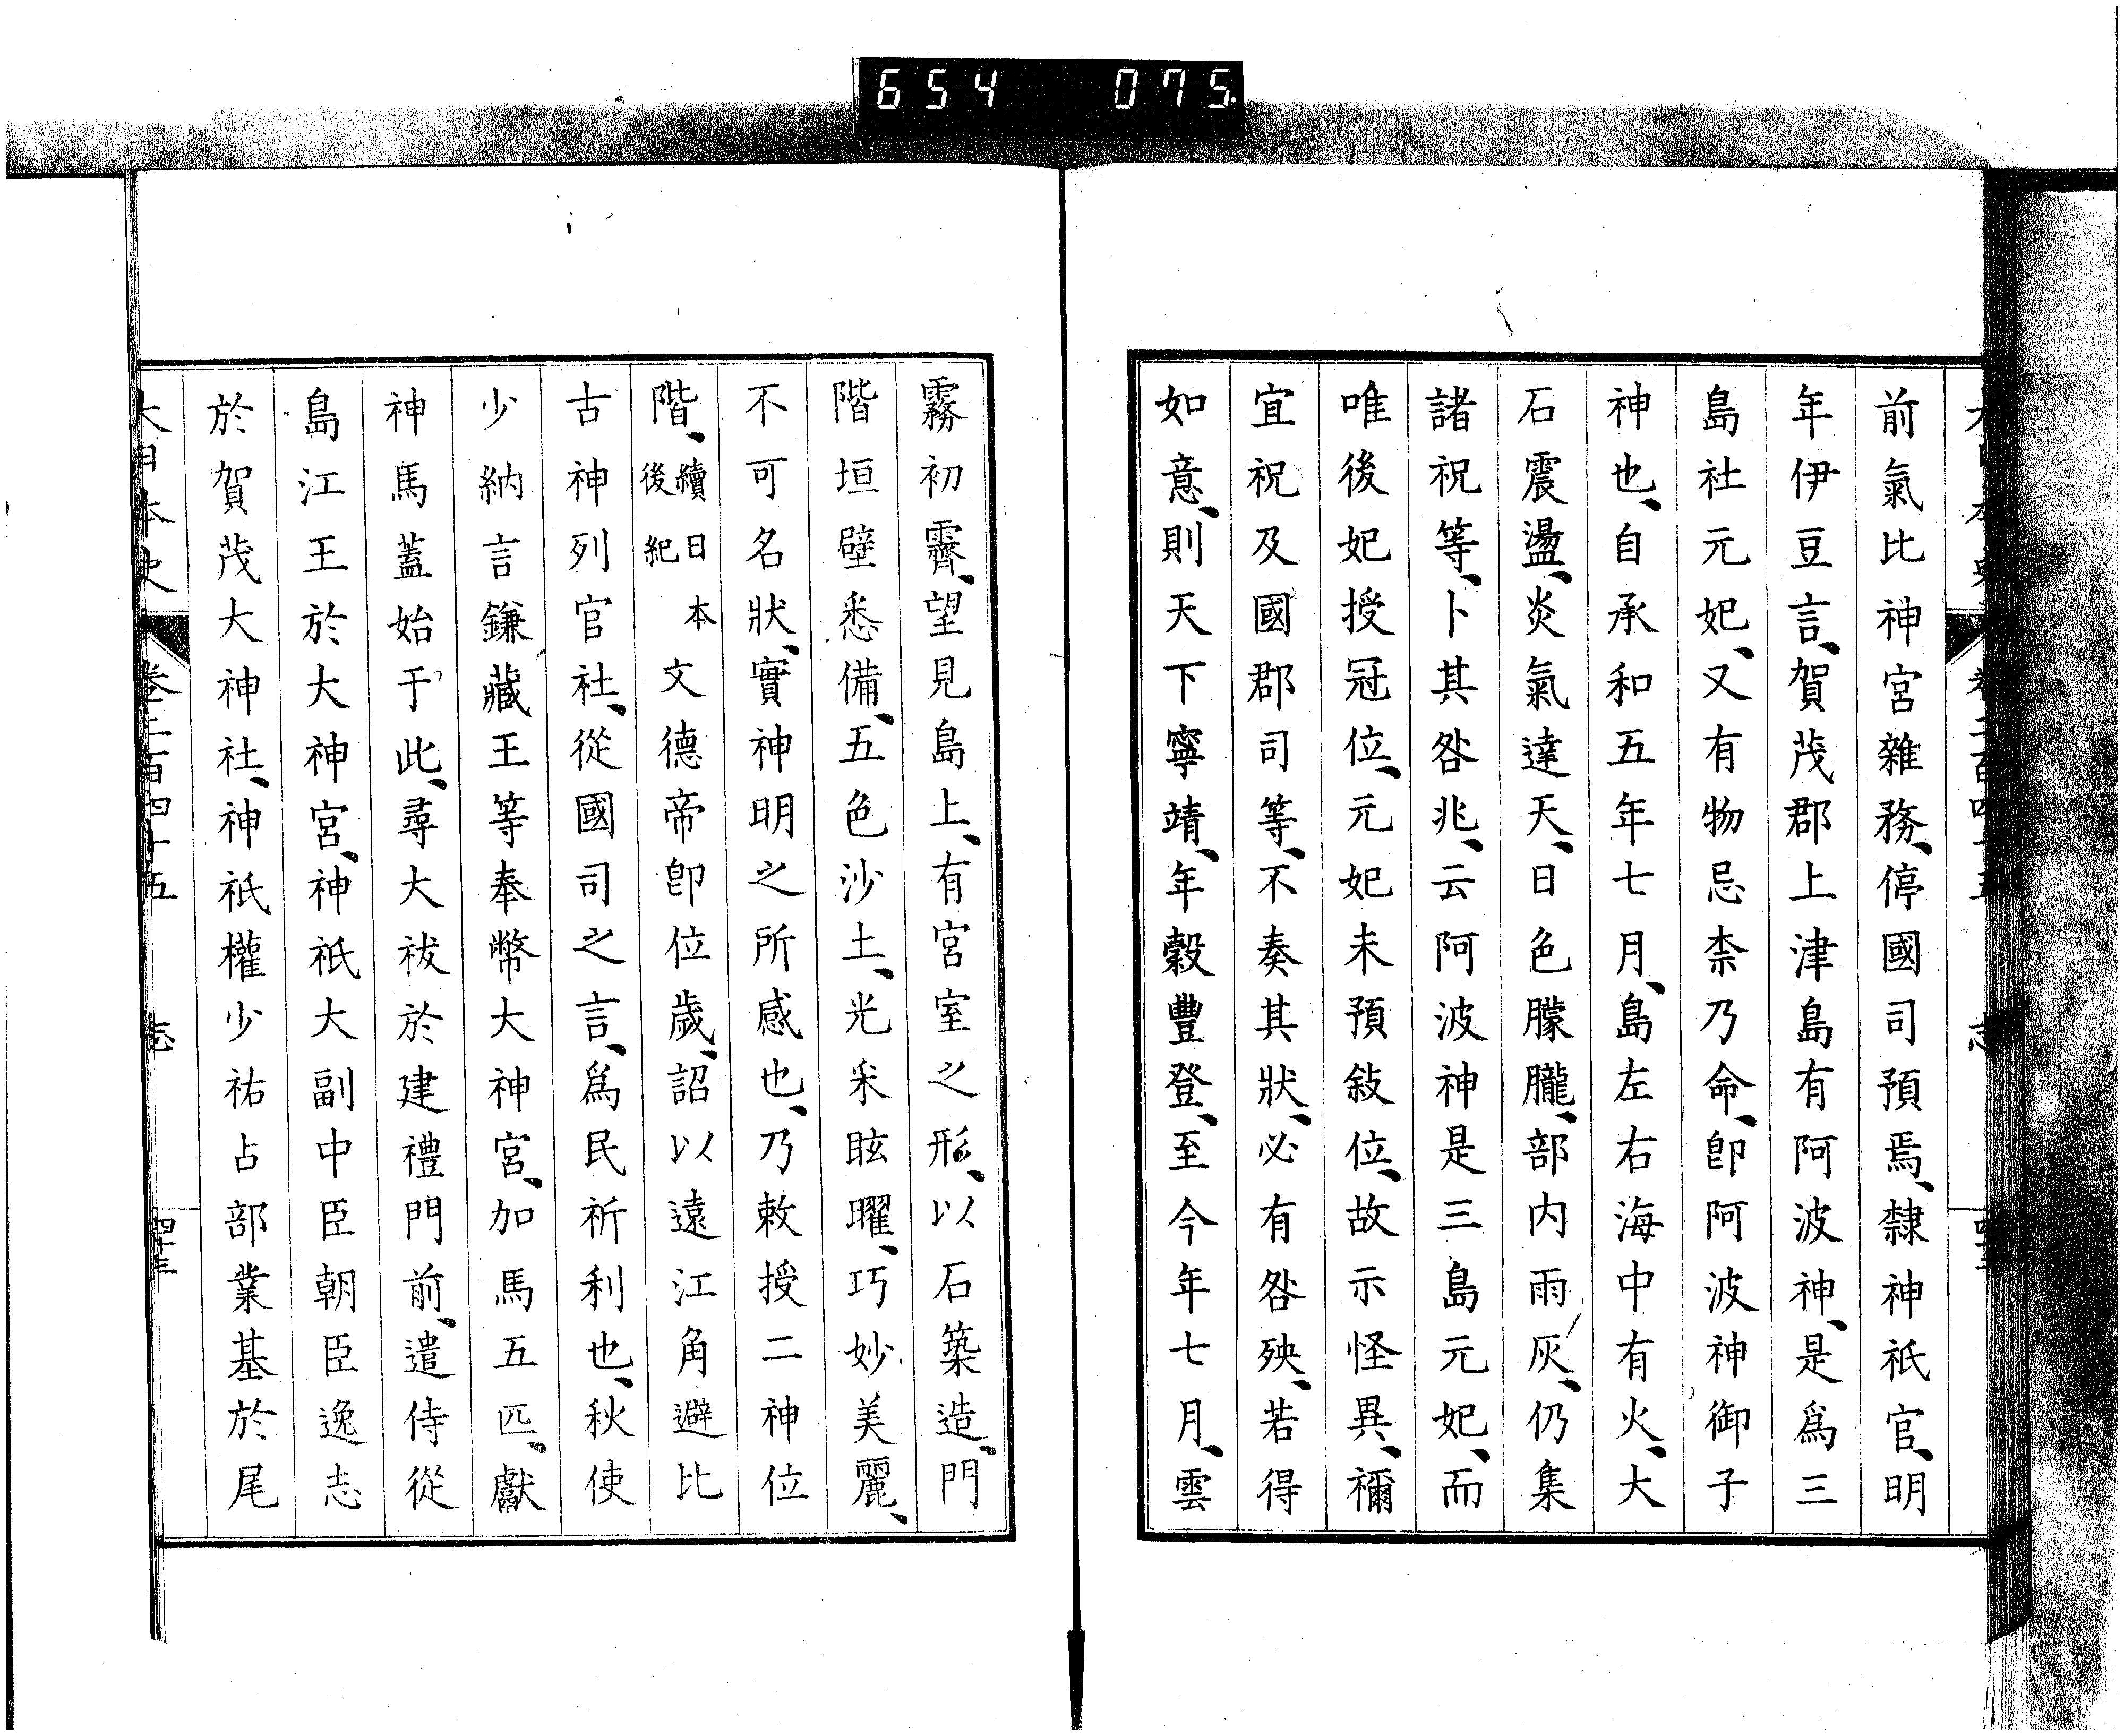 654 075
前氣比神宮雜務、停國司預焉、隸神祇官、明
年伊豆言、賀茂郡上津島有阿波神、是爲三
島社元妃、又有物忌柰乃命、卽阿波神御子
神也、自承和五年七月、島左右海中有火、大
石震盪、炎氣達天、日色朦朧、部内雨灰、仍集
諸祝等、卜其咎兆、云阿波神是三島元妃、而
唯後妃授冠位、元妃未預敍位、故示怪異、禰
宜祝及國郡司等、不奏其狀、必有咎殃、若得
如意、則天下寧靖、年穀豐登、至今年七月、雲
霧初霽、望見島上、有宮室之形、以石築造、門
階垣壁悉備、五色沙土、光釆眩曜、巧妙美麗、
不可名狀、實神明之所感也、乃敕授二神位
階、續日本後紀 文德帝卽位歲、詔以遠江角避比
古神列官社、從國司之言、爲民祈利也、秋使
少納言鎌藏王等奉幣大神宮、加馬五匹、獻
神馬蓋始于此、尋大祓於建禮門前、遣侍從
島江王於大神宮、神祇大副中臣朝臣逸志
於賀茂大神社、神祇權少祐占部業基於尾
大日本史 卷二百四十五 志 四十三